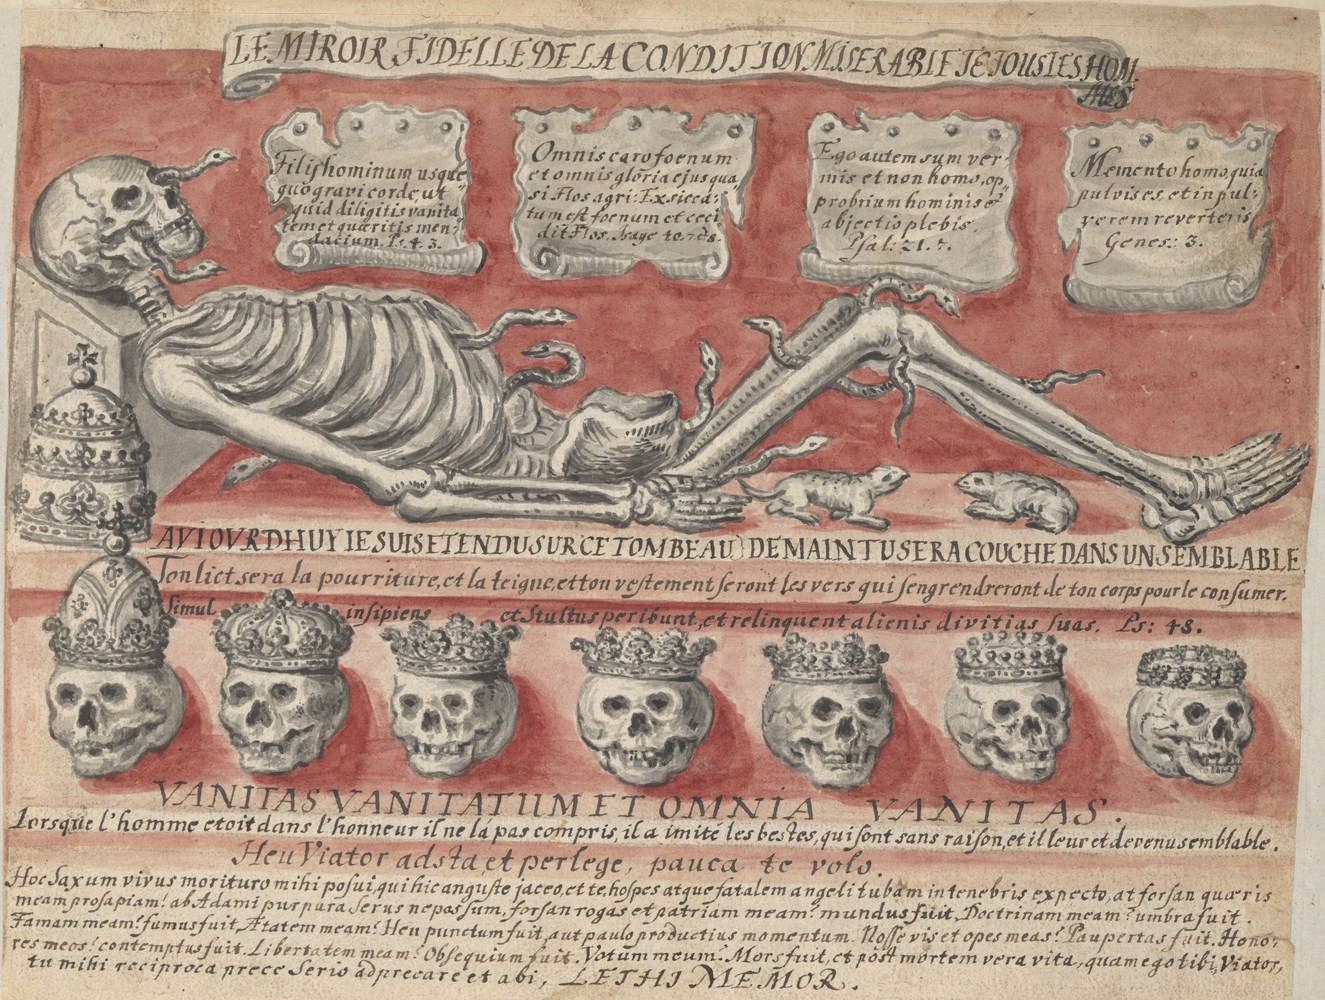 LE MIROIR FIDELLE DE LA CONDITION MISERABLE DE TOUS LES HOM.
MES
Filij hominum usque
quo gravi corde, ut
quid diligitis vanita
tem et quæritis men-
dacium. Ps. 4. 3.
Omnis caro foenum
et omnis gloria ejus qua
si Flos agri: Exsicca-
tum est foenum et ceci
dit Flos. Isaye 40. 7. 8.
Ego autem sum ver-
mis et non homo, op-
probrium hominis et
abjectio plebis.
Psal: 21. 7.
Memento homo, quia
pulvis es, et in pul-
verem reverteris
Genes: 3.
AVIOVRDHUY IE SUIS ETENDU SUR CE TOMBEAU) DEMAIN TU SERA COUCHE DANS UN SEMBLABLE
Ton lict sera la pourriture, et la teigne, et ton vestement seront les vers qui sengrendreront de ton corps pour le consumer.
Simul insipiens et Stultus peribunt, et relinquent alienis divitias suas. Ps: 48.
VANITAS VANITATUM ET OMNIA VANITAS.
Lorsque l'homme etoit dans l'honneur il ne lá pas compris, il a imité les bestes, qui sont sans raison, et il leur et devenu semblable.
Heu Viator adsta, et perlege, pauca te volo.
Hoc Saxum vivus morituro mihi posui, qui hic anguste jaceo, et te, hospes atque fatalem angeli tubam in tenebris expecto, at forsan quæris
meam prosapiam? ab Adami purpura Serus nepos sum, forsan rogas et patriam meam? mundus fuit, Doctrinam meam? umbra fuit.
Famam meam? fumus fuit, Ætatem meam? Heu punctum fuit, aut paulo productius momentum. Nosse vis et opes meas? Paupertas fuit. Hono-
res meos? contemptus fuit. Libertatem meam? Obsequium fuit. Votum meum? Mors fuit, et post mortem vera vita, quam ego tibi, Viator,
tu mihi reciproca prece Serio adprecare et abi, LETHI MEMOR.